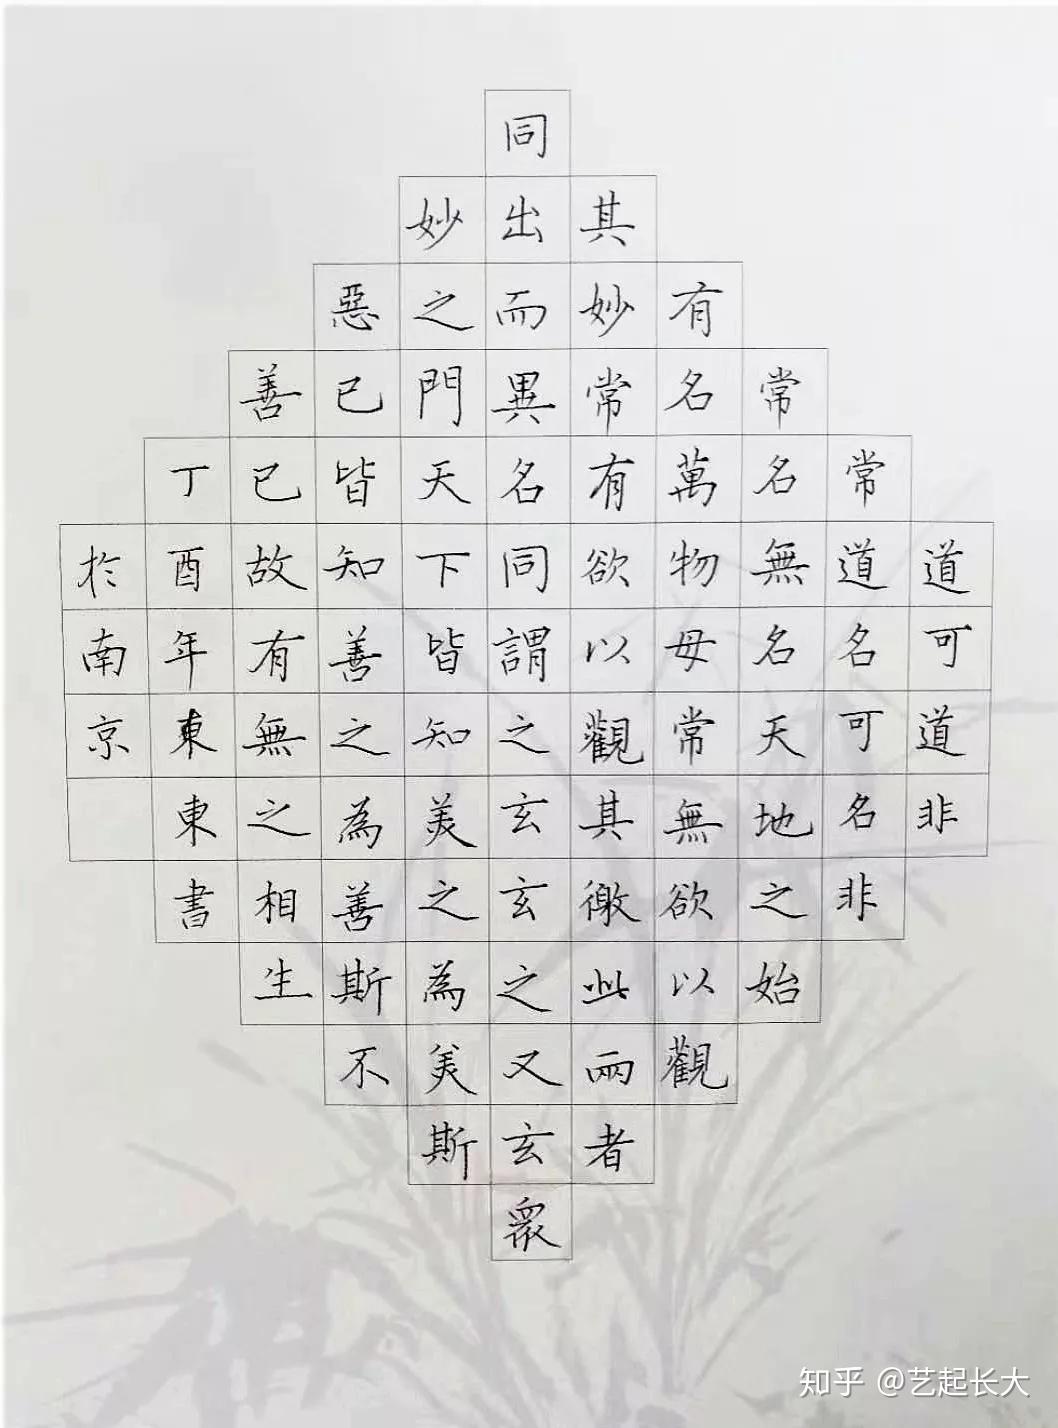 道可道非
常道名可名非
常名無名天地之始
有名萬物母常無欲以觀
其妙常有欲以觀其徼此兩者
同出而異名同謂之玄玄之又玄眾
妙之門天下皆知美之為美斯
惡已皆知善之為善斯不
善已故有無之相生
丁酉年東東書
於南京
知乎 @艺起长大